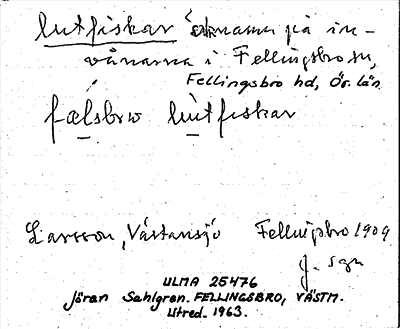 lutfiskar öknamn på in-
vånarna i Fellingsbro sn,
Fellingsbro hd, Ör. län
fælsbrω lùtfiskar
Larsson, Västansjö Fellingsbro 1909
J. Sgn
ULMA 25476
Jöran Sahlgren. FELLINGSBRO, VÄSTM.
Utred. 1963.